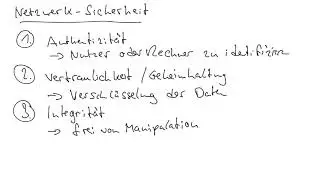 Netzwerk-Sicherheit
1. Authentizität
→ Nutzer oder Rechner zu idetifizieren
2. Vertraulichkeit / Geheimhaltung
→ Verschlüsselung der Daten
3. Integrität
→ frei von Manipulation